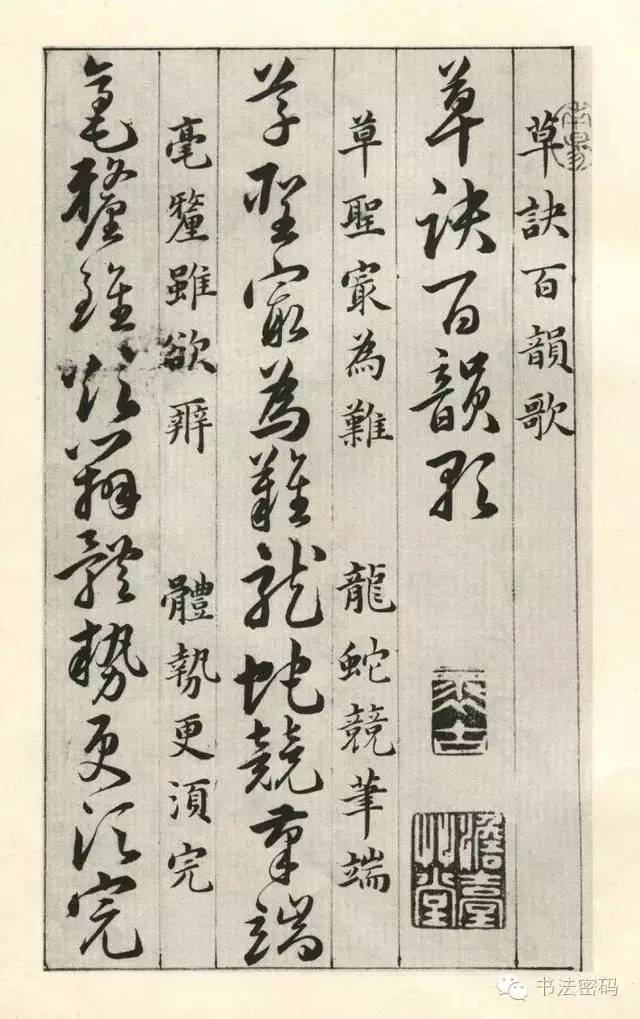 草訣百韻歌
草訣百韻歌
草聖㝡為難 龍蛇競筆端
草聖㝡為難龍蛇競筆端
毫釐雖欲辨 體勢更湏完
毫釐雖欲辨體勢更須完
书法密码